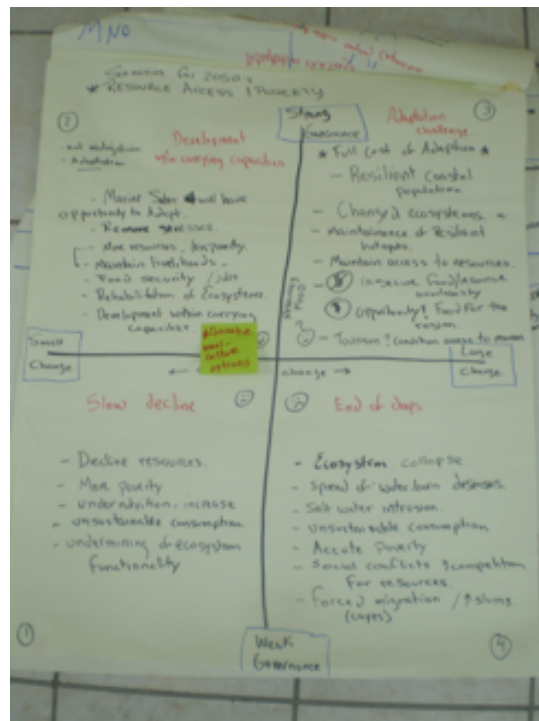 MNO
Scenarios for 2050:
* RESOURCE ACCESS & POVERTY
Strong
Governance
②
Development
w/in carrying capacities
- Adaptation
opportunity to Adapt.
- Remove stresses.
- More resources, less poverty
- Maintain livelihoods -
- Food security / jobs
- Rehabilitation of Ecosystems.
- Development within carrying
capacities
③
Adaptation
challenge
* Full cost of Adaption *
- Resilient coastal
population
- Changed ecosystems -
- Maintainance of Resilient
hotspots.
- Maintain access to resources.
- insecure food/resource
availability
opportunity? Food for the
region.
- Tourism?
Small
Change
options
← change →
Large
Change
Slow decline
- Decline resources.
- More poverty
- undernutrition increase
- unsustainable consumption.
- undermining of ecosystem
functionality
①
End of days
- Ecosystem collapse.
- Spread of water born diseases.
- Salt water intrusion.
- unsustainable consumption
- Accute Poverty
- Social conflicts & competition
For resources.
- Forced migration / ↑ slums
④
Weak
Governance